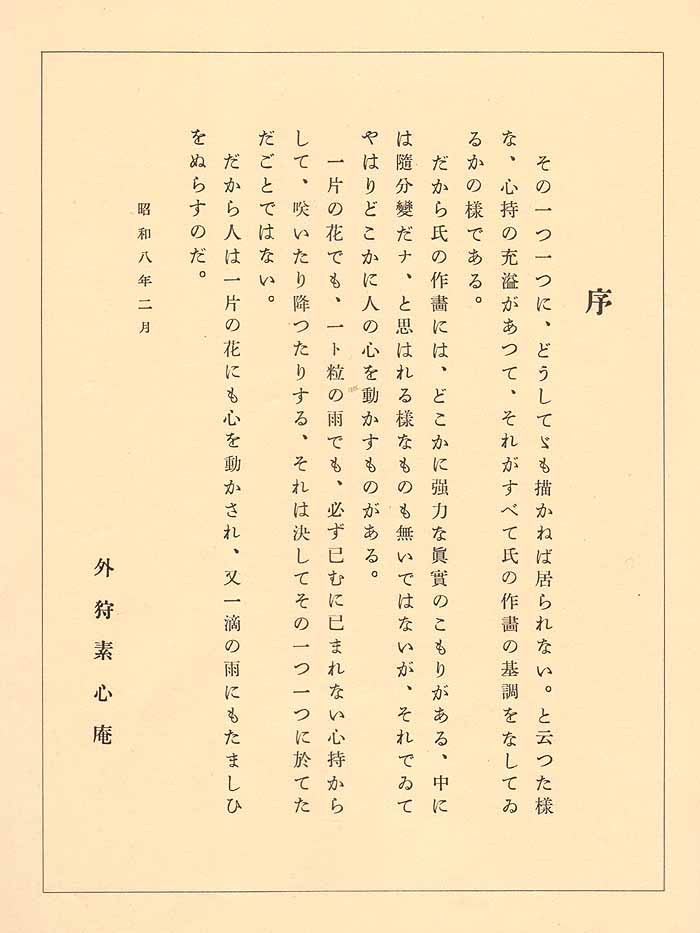 序
その一つ一つに、どうしてゞも描かねば居られない。と云つた樣
な、心持の充溢があつて、それがすべて氏の作畵の基調をなしてゐ
るかの樣である。
だから氏の作畵には、どこかに强力な眞實のこもりがある、中に
は隨分變だナ、と思はれる樣なものも無いではないが、それでゐて
やはりどこかに人の心を動かすものがある。
一片の花でも、一ト粒の雨でも、必ず已むに已まれない心持から
して、咲いたり降つたりする、それは決してその一つ一つに於てた
だごとではない。
だから人は一片の花にも心を動かされ、又一滴の雨にもたましひ
をぬらすのだ。
昭和八年二月
外狩素心庵